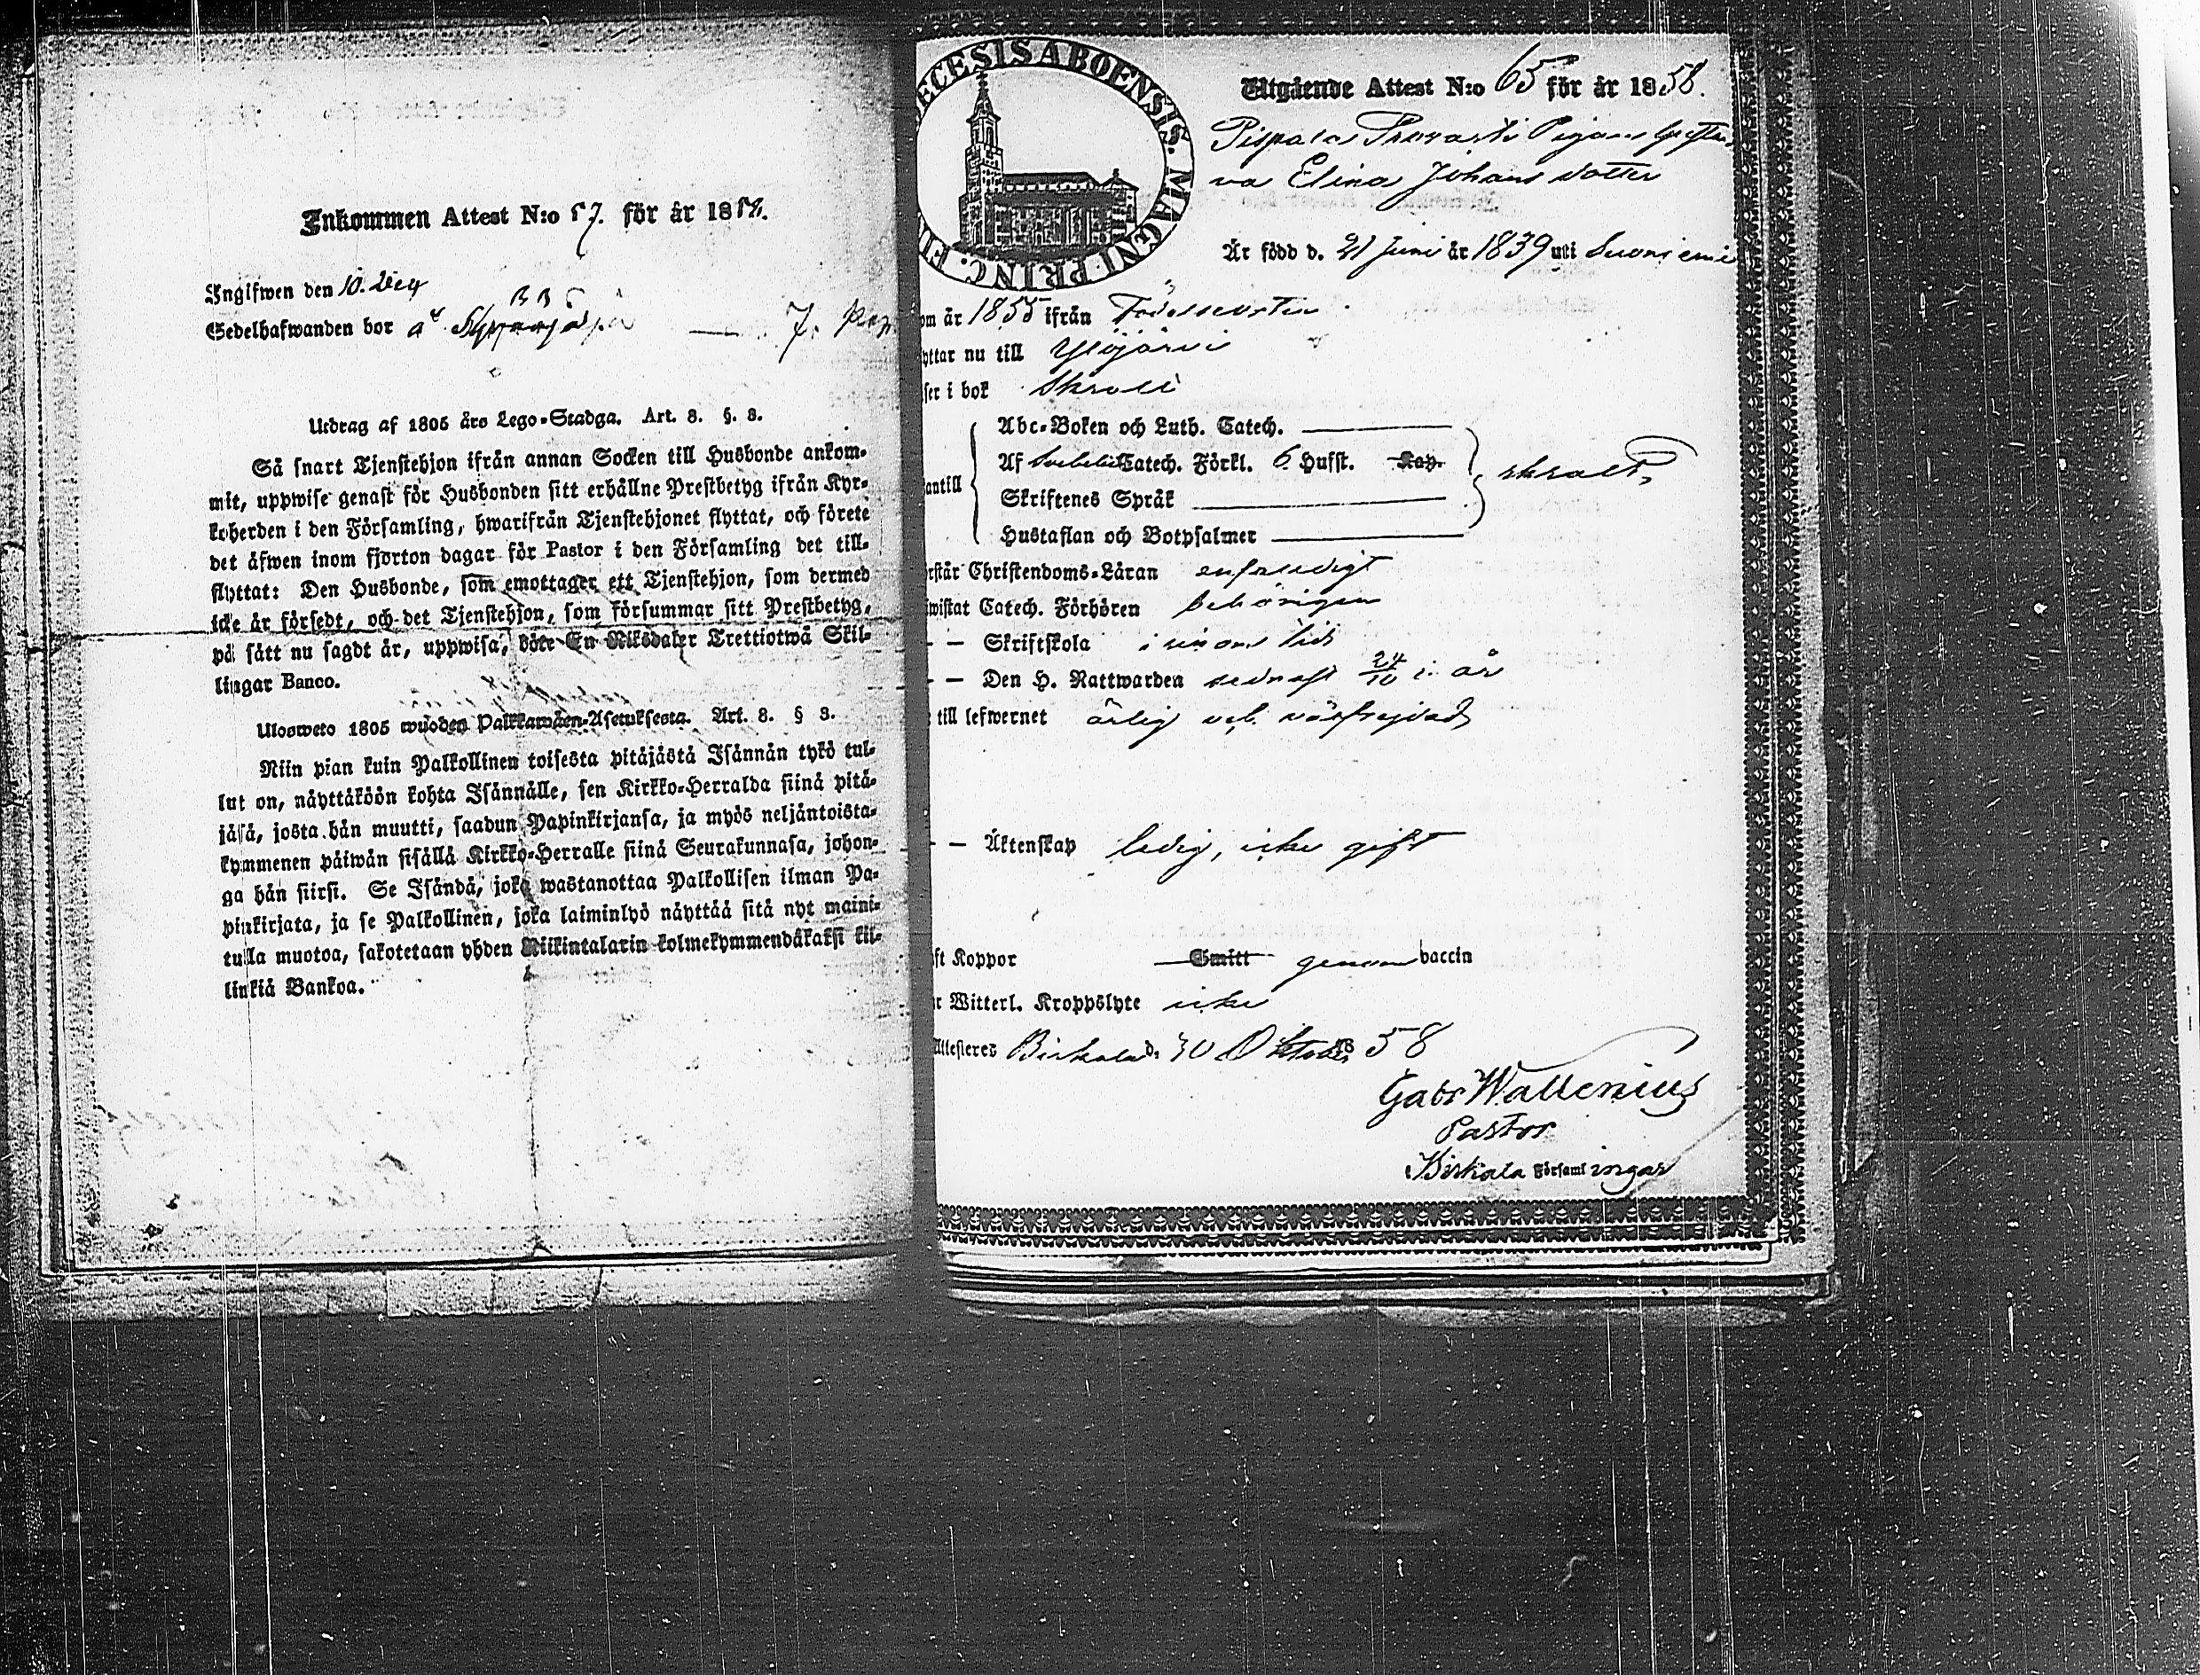 Inkommen Attest N:o 57. för år 1858.
Ingifwen den 10. Dec
Sedelhafwanden bor å
Utdrag af 1805 års Lego-Stadga. Art. 8. §. 3.
Så snart Tjenstehjon ifrån annan Socken till Husbonde ankom-
mit, uppwise genast för Husbonden sitt erhållne Prestbetyg ifrån Kyr-
koherden i den Församling, hwarifrån Tjenstehjonet flyttat, och förete
det äfwen inom fjorton dagar för Pastor i den Församling det till-
flyttat: Den Husbonde, som emottager ett Tjenstehjon, som dermed
icke är försedt, och det Tjenstehjon, som försummar sitt Prestbetyg,
på sätt nu sagdt är, uppwisa, böte En Riksdaler Trettiotwå Skil-
lingar Banco.
Ulosweto 1805 wuoden Palkkawäen-Asetuksesta. Art. 8. § 3.
Niin pian kuin Palkollinen toisesta pitäjästä Isännän tykö tul-
lut on, näyttäköön kohta Isännälle, sen Kirkko-Herralda siinä pitä-
jäsä, josta hän muutti, saadun Papinkirjansa, ja myös neljäntoista-
kymmenen päiwän sisällä Kirkko-Herralle siinä Seurakunnasa, johon-
ga hän siirsi. Se Isändä, joka wastanottaa Palkollisen ilman Pa-
pinkirjata, ja se Palkollinen, joka laiminlyö näyttää sitä nyt maini-
tulla muotoa, sakotetaan yhden Riikintalarin kolmekymmendäkaksi kil-
linkiä Bankoa.
ECESIS ABOENSIS. MAGNI PRINC. FI
Utgående Attest N:o 65 för år 1858.
Pispala Pigan
Elina Johans dotter
Är född d. 21 Juni år 1839 uti Suoniemi
om år 1855 ifrån Födelseorten
yttar nu till Ylöjärvi
ser i bok Skralt
Abc-Boken och Luth. Catech.
Af Svebelii Catech. Förkl. 6. Husst. Kap. skralt
antill
Skriftenes Språk
Hustaflan och Botpsalmer
rstår Christendoms-Läran enfaldigt
wistat Catech. Förhören behörigen
- - Skriftskola i sin tid
- - Den H. Nattwarden sednast 24/10 i. år
till lefwernet ärlig och välfrejdad
- - Äktenskap ledig, icke gift
ft Koppor Smitt genom vaccin
r Witterl. Kroppslyte icke
Attesteres Birkala d. 30 Oktober 1858
Gabr Wallenius
Pastor
Birkala Församlingar